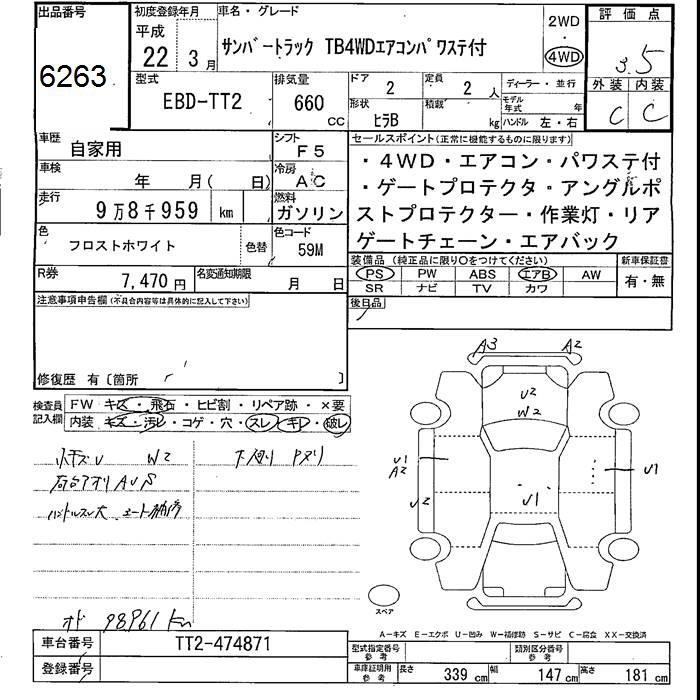 出品番号 初度登録年月 車名・グレード 2WD 評価点
6263 平成 22年 3月 サンバートラック TB4WDエアコンパワステ付 4WD 3.5
型式 排気量 ドア 2 定員 2人 ディーラー・並行 外装 内装
EBD-TT2 660 CC 形状 ヒラB 積載 kg モデル年式 年 ハンドル 左・右 C C
車歴 自家用 シフト F5 セールスポイント(正常に機能するものに限ります)
車検 年 月( 日) 冷房 AC ・4WD・エアコン・パワステ付
走行 9万8千959 km 燃料 ガソリン ・ゲートプロテクタ・アングルポ
ストプロテクター・作業灯・リア
色 フロストホワイト 色替 色コード 59M ゲートチェーン・エアバック
装備品 (純正品に限り○をつけてください) 新車保証書
R券 7,470円 名変通知期限 月 日 PS PW ABS エアB AW 有・無
SR ナビ TV カワ
注意事項申告欄(不具合内容等は具体的に記入して下さい) 後日品
修復歴 有〔箇所 〕
A3 A2
検査員記入欄 FW キズ・飛石・ヒビ割・リペア跡・×要
内装 キズ・汚レ・コゲ・穴・スレ・キレ・破レ
U2
W2
小キズU W2
U1
A2
U1
U2 U1
スペア
オド 98961 km
A-キズ E-エクボ U-凹み W-補修跡 S-サビ C-腐食 XX-交換済
車台番号 TT2-474871 型式指定番号 参考 類別区分番号 参考
登録番号 車庫証明用 参考 長さ 339 cm 幅 147 cm 高さ 181 cm